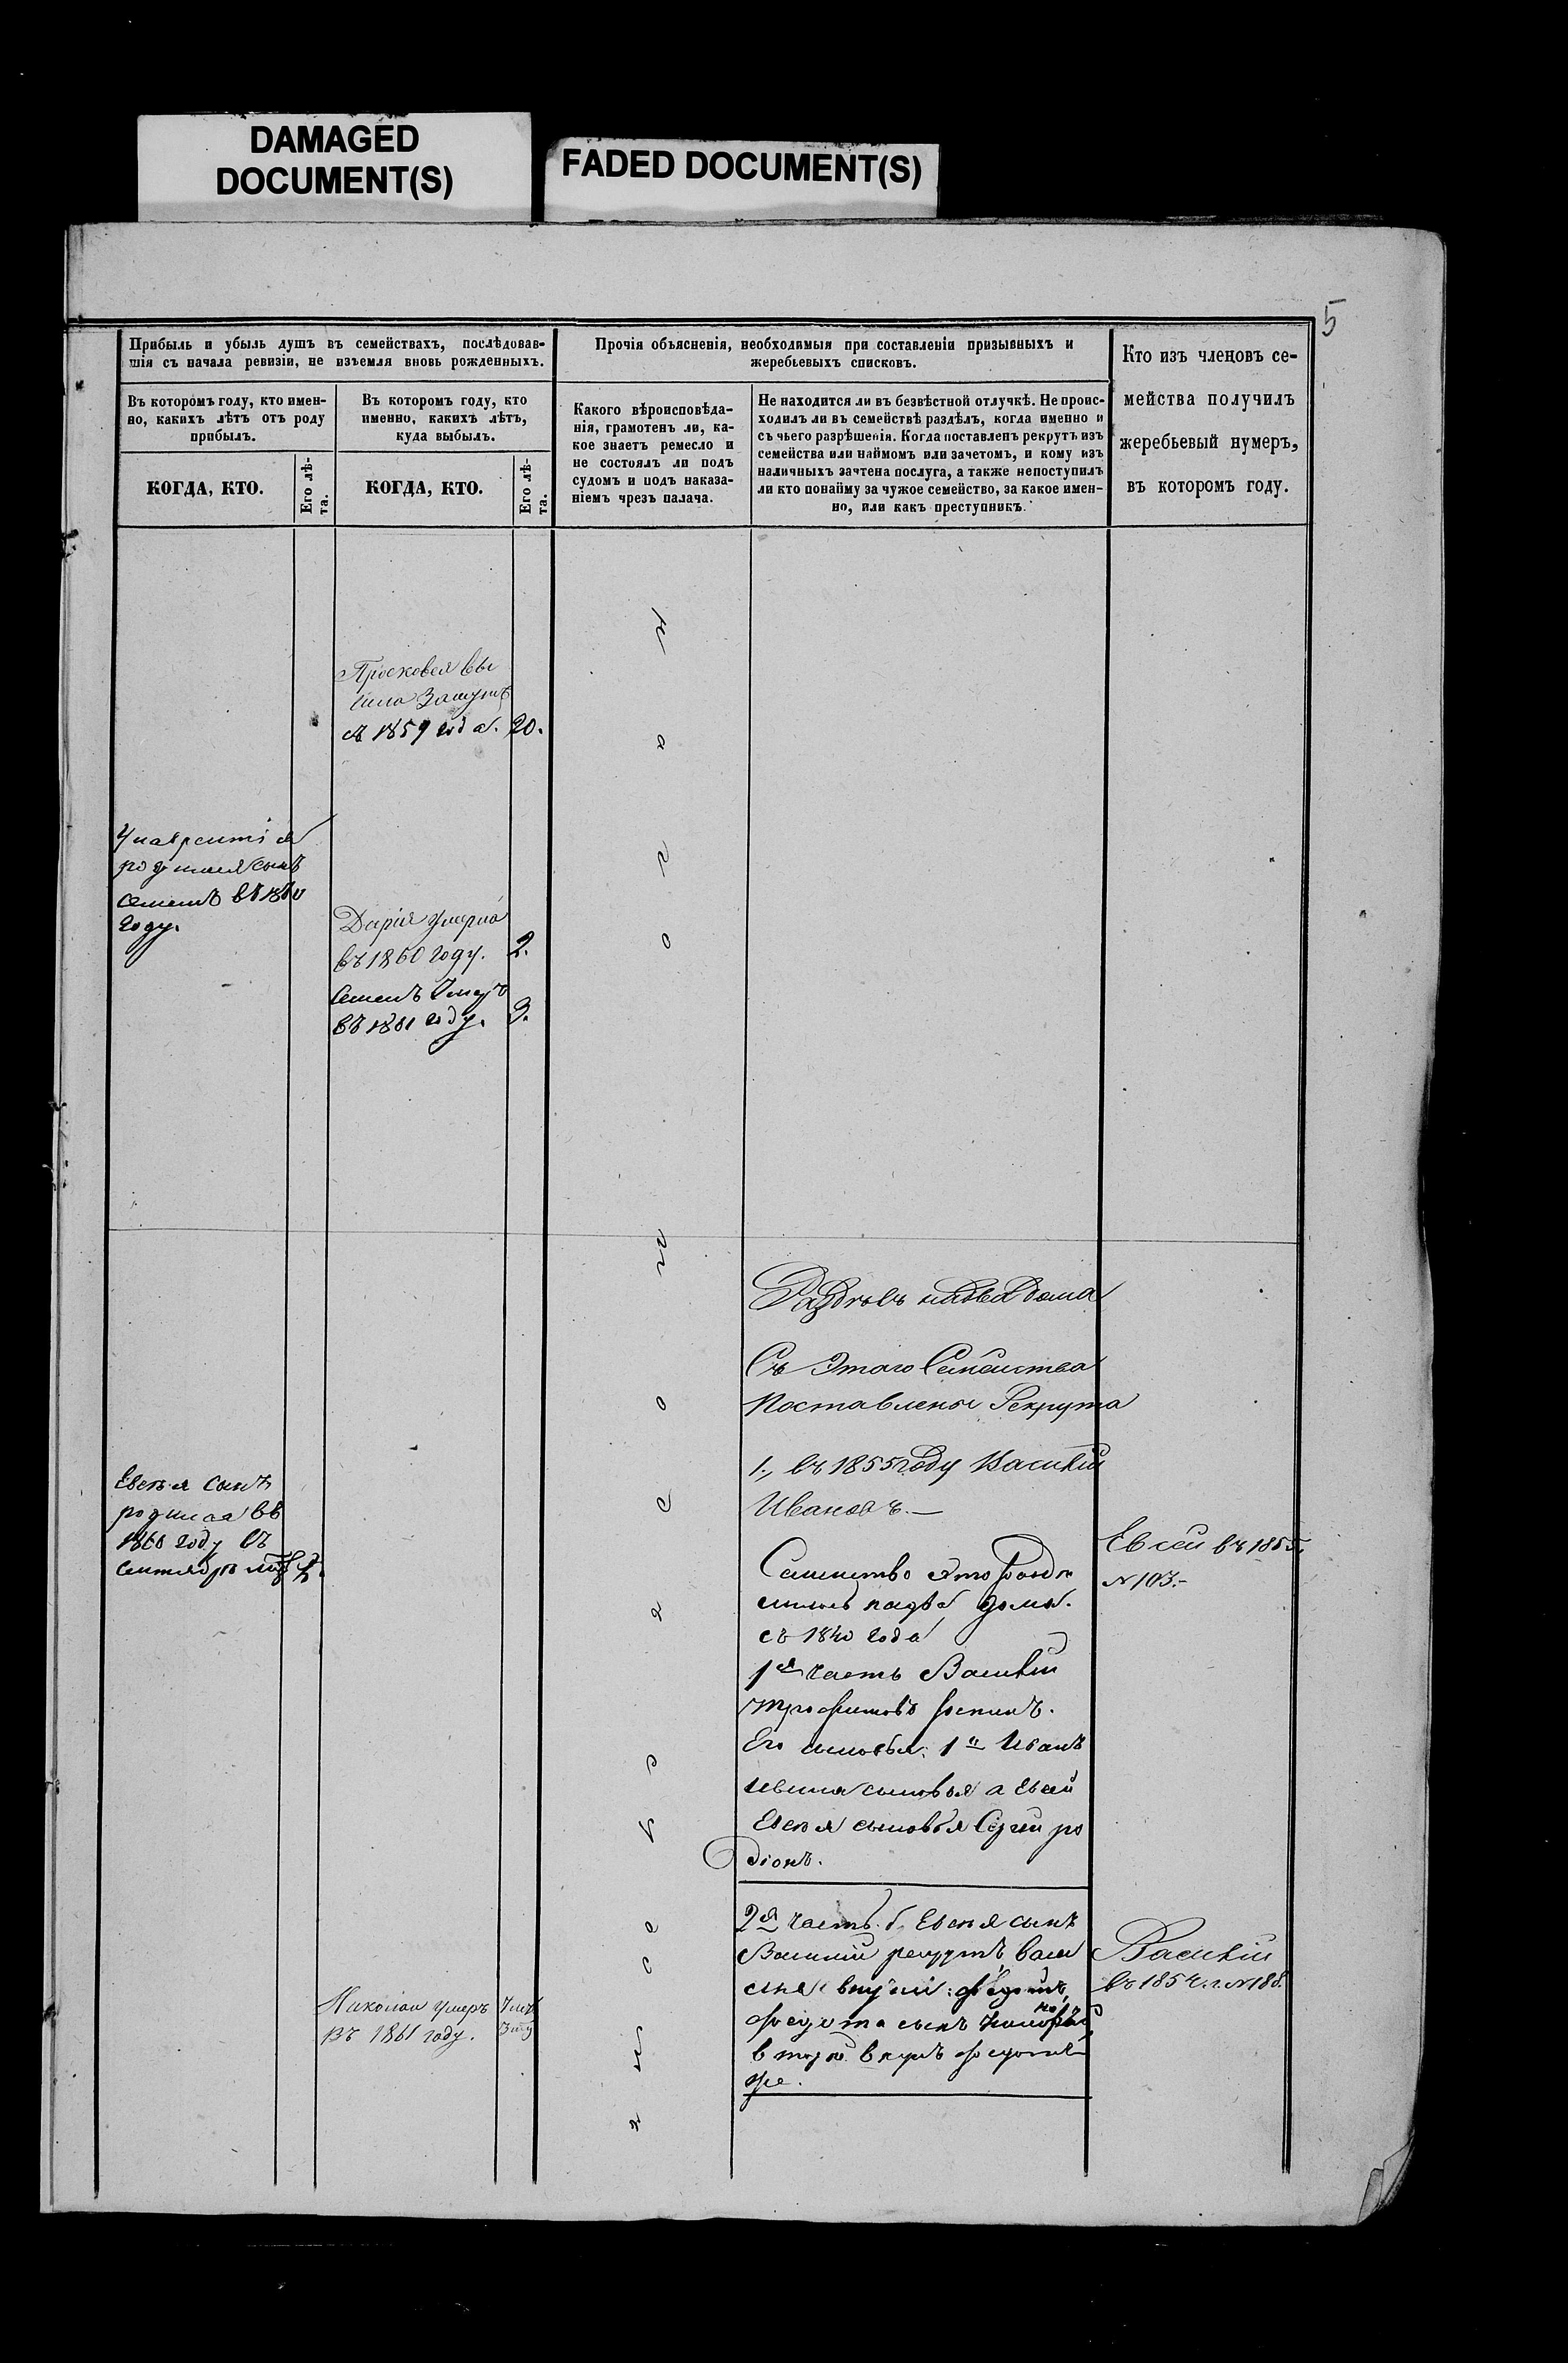 DAMAGED
DOCUMENT(S)
FADED DOCUMENT(S)
5
Прибыль и убыль душъ въ семействахъ, послѣдовав-
шія съ начала ревизіи, не изъемля вновь рожденныхъ.
Въ которомъ году, кто имен-
но, какихъ лѣтъ отъ роду
прибылъ.
КОГДА, КТО.
Его лѣ-
та.
Въ которомъ году, кто
именно, какихъ лѣтъ,
куда выбылъ.
КОГДА, КТО.
Его лѣ-
та.
Прочія объясненія, необходимыя при составленіи призывныхъ и
жеребьевыхъ списковъ.
Какого вѣроисповѣда-
нія, грамотенъ ли, ка-
кое знаетъ ремесло и
не состоялъ ли подъ
судомъ и подъ наказа-
ніемъ чрезъ палача.
Не находится ли въ безвѣстной отлучкѣ. Не проис-
ходилъ ли въ семействѣ раздѣлъ, когда именно и
съ чьего разрѣшенія. Когда поставленъ рекрутъ изъ
семейства или наймомъ или зачетомъ, и кому изъ
наличныхъ зачтена послуга, а также непоступилъ
ли кто понайму за чужое семейство, за какое имен-
но, или какъ преступникъ.
Кто изъ членовъ се-
мейства получилъ
жеребьевый нумеръ,
въ которомъ году.
Просковея вы
шла Замужъ
съ 1859 года. 20.
родился сынъ
Семенъ въ 1860
году.
Дарія умерла
въ 1860 году. 2.
Семенъ Умеръ
въ 1861 году. 3.
Раздѣлъ на два дома
Съ Этаго Семейства
Поставлены Рекрута
1., въ 1855 году Василій
Ивановъ.—
Евсея сынъ
родился въ
1860 году въ
сентябрѣ
Евсей въ 1855.
№ 103.-
Семейство это
на два дома.
съ 1840 года
1я часть Василій
Трофимовъ
Его сыновья: 1й Иванъ
сыновья а Евсей
Евсея сыновья Сергей ро
діонъ.
2я часть. Евсея сынъ
Василий рекрутъ, Васи
Федота сынъ
внукъ
же.
Василій
въ 1854 г. № 188.
Николай умеръ
въ 1861 году.